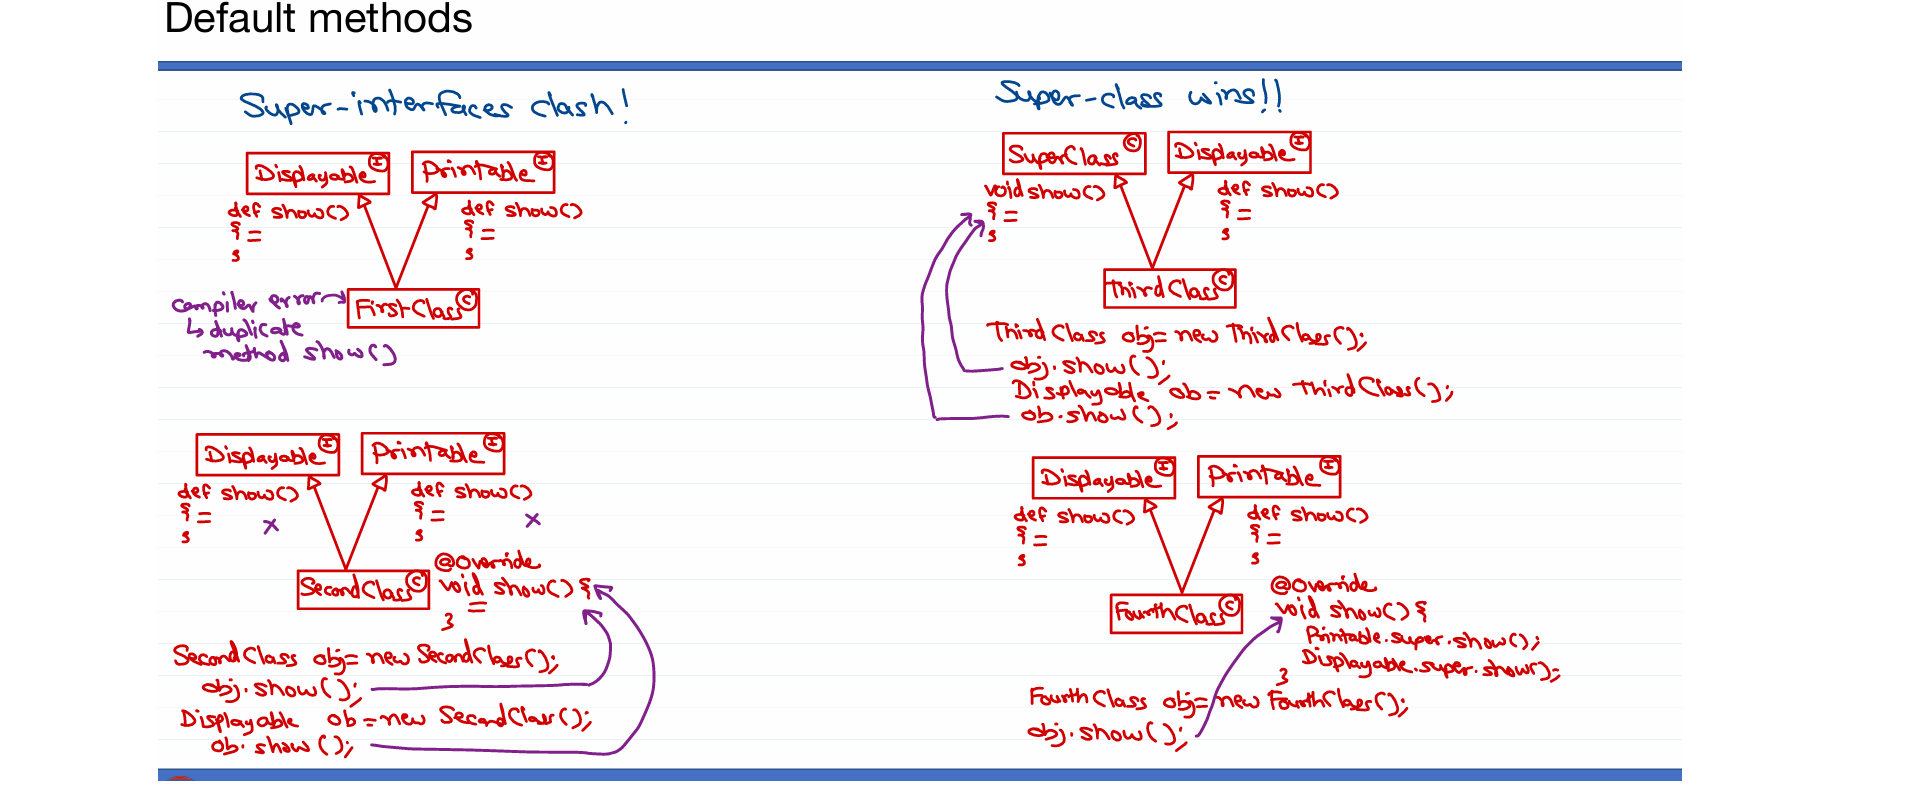 Default methods
Super-interfaces clash!
Displayable I
Printable I
def show()
{ =
}
def show()
{ =
}
compiler error
↳ duplicate
method show()
FirstClass C
Displayable I
Printable I
def show()
{ =
}
x
def show()
{ =
}
x
SecondClass C
@Override
void show() {
=
}
SecondClass obj= new SecondClass();
obj.show();
Displayable ob = new SecondClass();
ob.show();
Super-class wins!!
SuperClass C
Displayable I
void show()
{ =
}
def show()
{ =
}
ThirdClass C
ThirdClass obj= new ThirdClass();
obj.show();
Displayable ob = new ThirdClass();
ob.show();
Displayable I
Printable I
def show()
{ =
}
def show()
{ =
}
FourthClass C
@Override
void show() {
Printable.super.show();
Displayable.super.show();
}
FourthClass obj= new FourthClass();
obj.show();